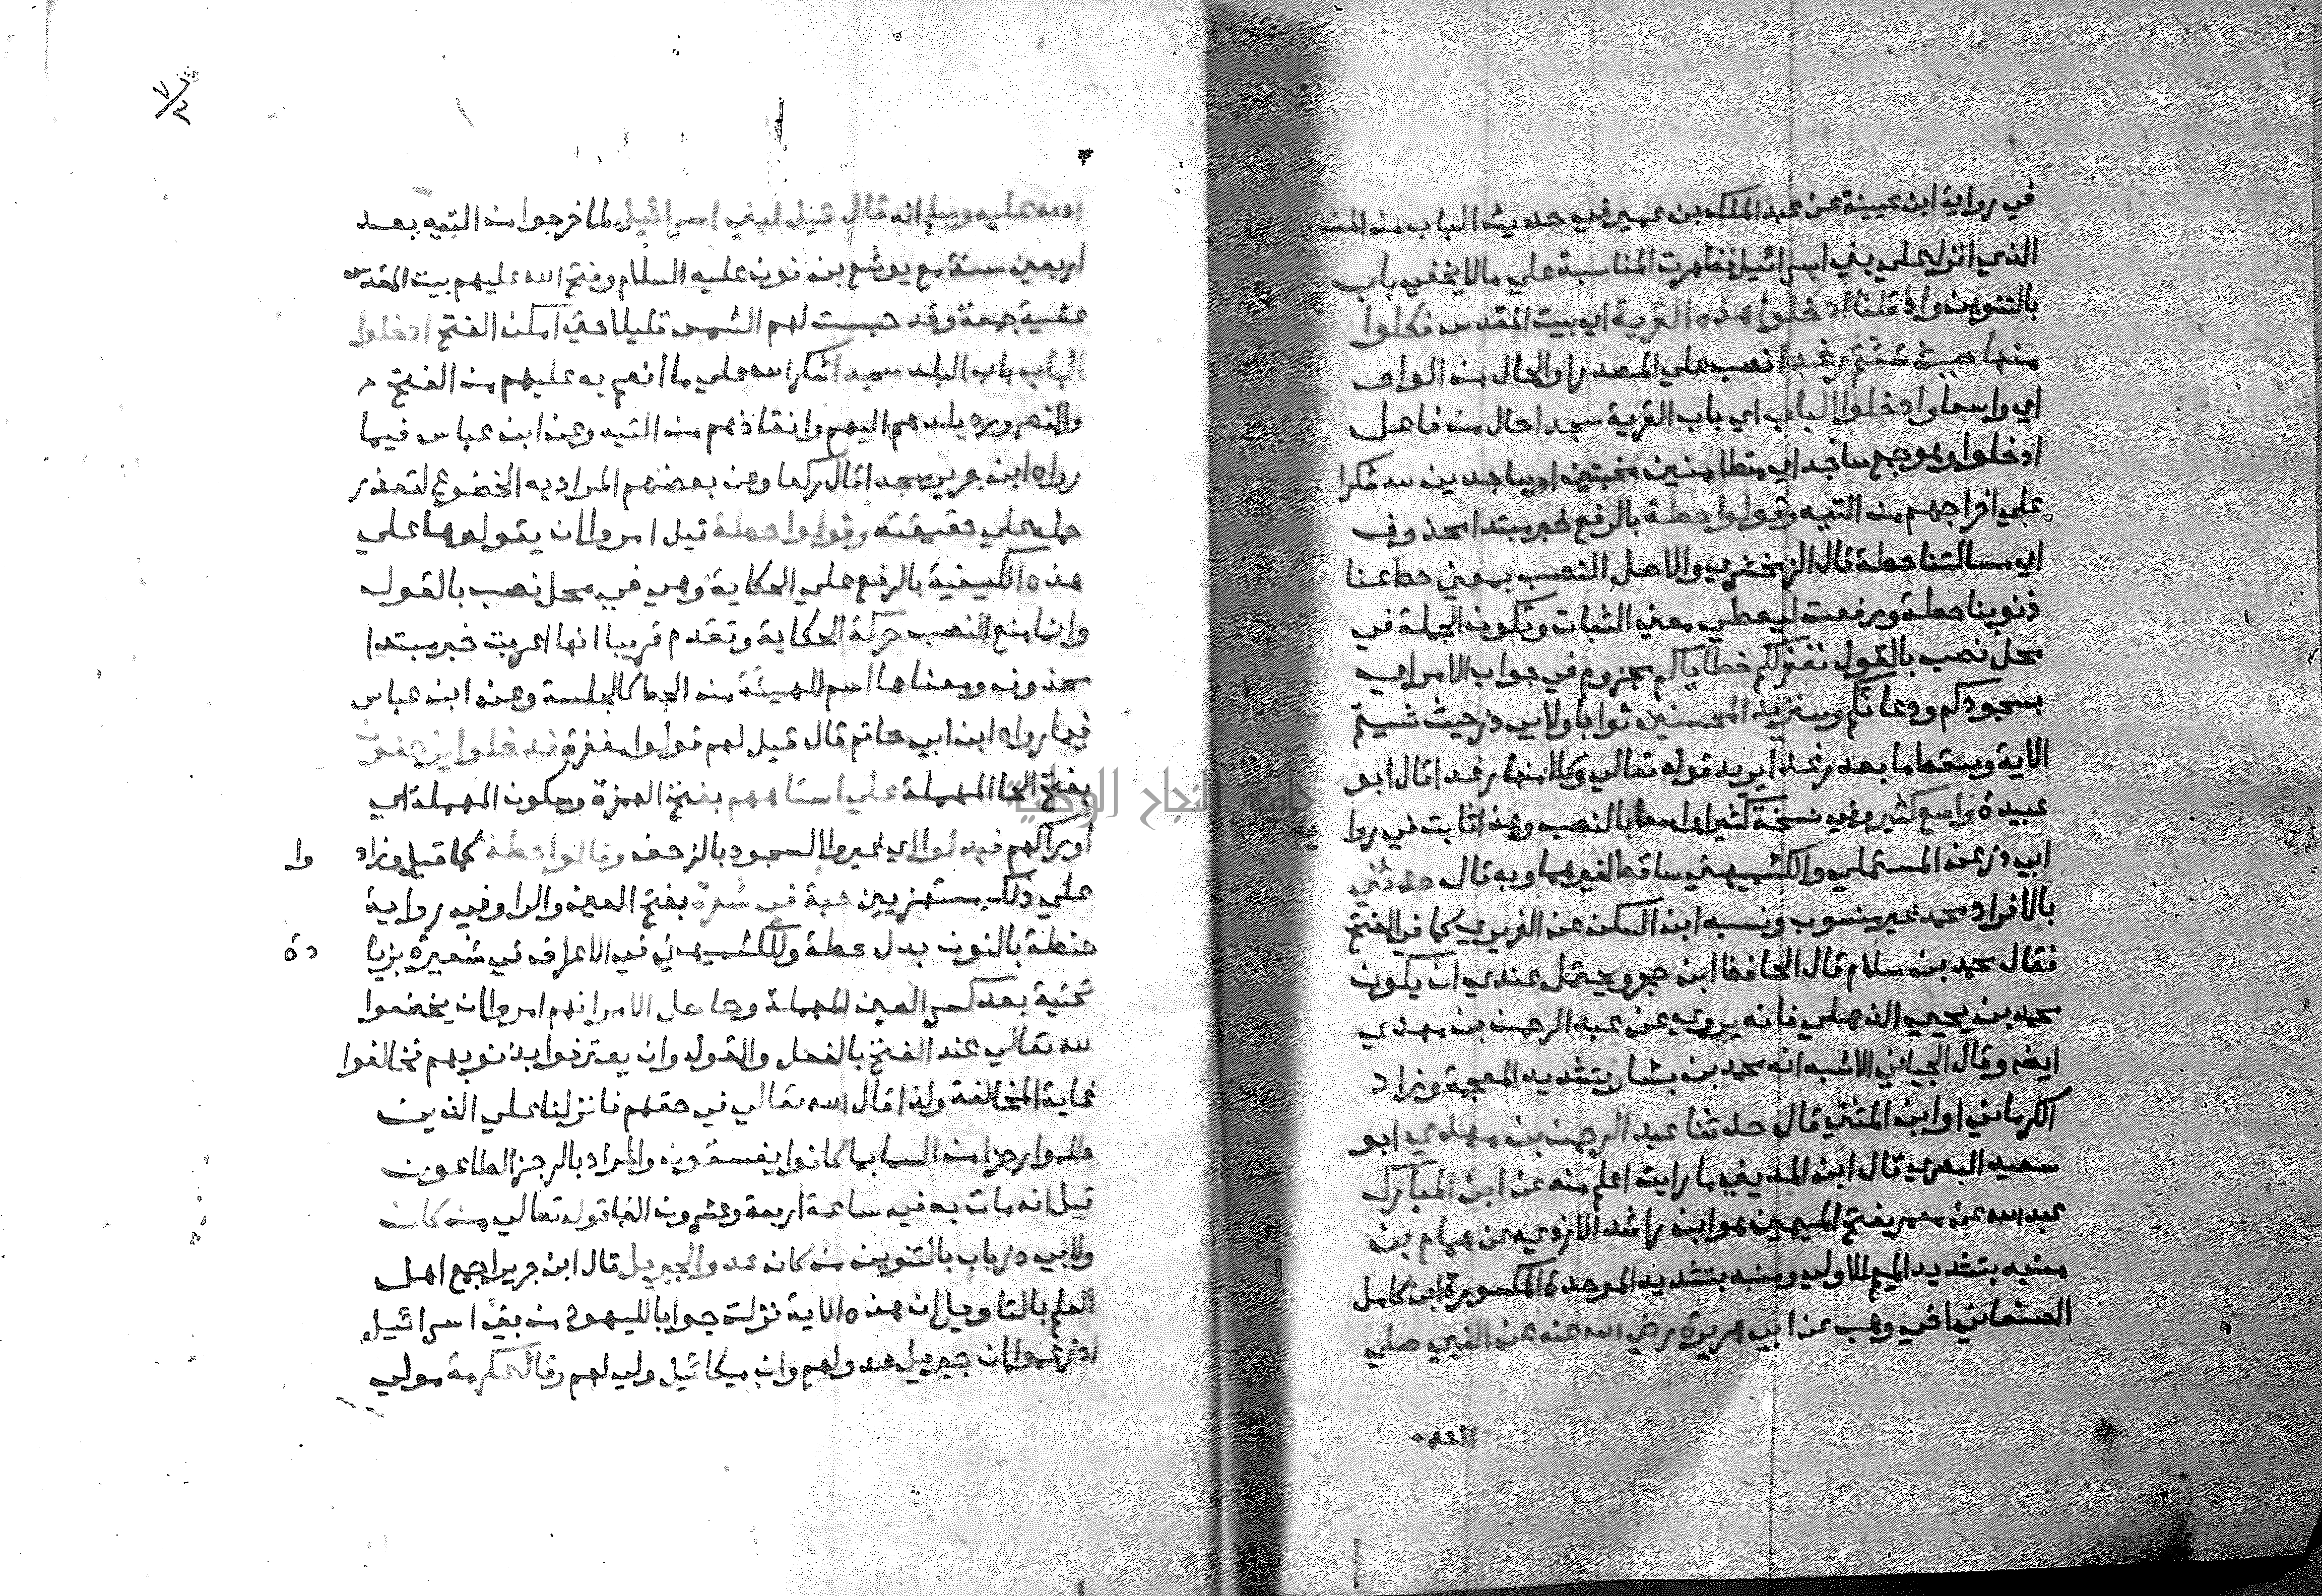 في رواية ابن عيينة عن عبد الملك بن عمير في حديث الباب من المن
الذي انزل علي بني اسرائيل فظهرت المناسبة علي ما لا يخفي باب
بالتنوين واذ قلنا ادخلوا هذه القرية اي بيت المقدس فكلوا
منها حيث شئتم رغدا نصب علي المصدر او الحال من الواو
اي واسعا وادخلوا الباب اي باب القرية سجدا حال من فاعل
ادخلوا وهو جمع ساجد اي متطامنين مخبتين او ساجدين لله شكرا
علي اخراجهم من التيه وقولوا حطة بالرفع خبر مبتدا محذوف
اي مسالتنا حطة قال الزمخشري والاصل النصب بمعني حط عنا
ذنوبنا حطة ورفعت ليعطي معني الثبات وتكون الجملة في
محل نصب بالقول نغفر لكم خطاياكم مجزوم في جواب الامر اي
بسجودكم ودعائكم وسنزيد المحسنين ثوابا ولابي ذر حيث شيتم
الاية ويسقط ما بعد رغدا يريد قوله تعالي وكلا منها رغدا قال ابو
عبيدة واسع كثير وفي نسخة كثيرا واسعا بالنصب وهذا ثابت في روا ية
ابي ذر عن المستملي والكشميهني ساقط لغيرهما وبه قال حدثني
بالافراد محمد غير منسوب ونسبه ابن السكن عن الفربري كما في الفتح
فقال محمد بن سلام قال الحافظ ابن حجر ويحتمل عندي ان يكون
محمد بن يحيي الذهلي فانه يروي عن عبد الرحمن بن مهدي
ايضا وقال الجياني الاشبه انه محمد بن بشار بتشديد المعجمة وزاد
الكرماني او ابن المثني قال حدثنا عبد الرحمن بن مهدي ابو
سعيد البصري قال ابن المديني ما رايت اعلم منه عن ابن المبارك
عبد الله عن معمر بفتح الميمين هو ابن راشد الازدي عن همام بن
منبه بتشديد الميم الاولي ومنبه بتشديد الموحدة المكسورة ابن كامل
الصنعاني اخي وهب عن ابي هريرة رضي الله عنه عن النبي صلي
الله
الله عليه وسلم انه قال قيل لبني اسرائيل لما خرجوا من التيه بعد
اربعين سنة مع يوشع بن نون عليه السلام وفتح الله عليهم بيت المقدس
عشية جمعة وقد حبست لهم الشمس قليلا حتي امكن الفتح ادخلوا
الباب باب البلد سجدا شكرا لله علي ما انعم به عليهم من الفتح
والنصر ورد بلدهم اليهم وانقاذهم من التيه وعن ابن عباس فيما
رواه ابن جرير سجدا قال ركعا وعن بعضهم المراد به الخضوع لتعذر
حمله علي حقيقته وقولوا حطة قيل امروا ان يقولوها علي
هذه الكيفية بالرفع علي الحكاية وهي في محل نصب بالقول
وانما منع النصب حركة الحكاية وتقدم قريبا انها اعربت خبر مبتدا
محذوف ومعناها اسم للهيئة من الحط كالجلسة وعن ابن عباس
فيما رواه ابن ابي حاتم قال قيل لهم قولوا مغفرة فدخلوا يزحفون
بفتح الحا المهملة علي استاههم بفتح الهمزة وسكون المهملة اي
اوراكهم فبدلوا اي غيروا السجود بالزحف وقالوا حطة كما قيل وزاد وا
علي ذلك مستهزيين حبة في شعرة بفتح العين والرا وفي رواية
حنطة بالنون بدل حطة وللكشميهني فيه الاعراف في شعيرة بزيا دة
تحتية بعد كسر العين المهملة وحاصل الامر انهم امروا ان يخضعوا
لله تعالي عند الفتح بالفعل والقول وان يعترفوا بذنوبهم فخالفوا
غاية المخالفة ولذا قال الله تعالي في حقهم فانزلنا علي الذين
ظلموا رجزا من السما بما كانوا يفسقون والمراد بالرجز الطاعون
قيل انه مات به في ساعة اربعة وعشرون الفا قوله تعالي من كان
ولابي ذر باب بالتنوين من كان عدوا لجبريل قال ابن جرير اجمع اهل
العلم بالتاويل ان هذه الاية نزلت جوابا لليهود من بني اسرائيل
اذ زعموا ان جبريل عدو لهم وان ميكائيل ولي لهم وقال عكرمة مولي
جامعة النجاح الوطنية